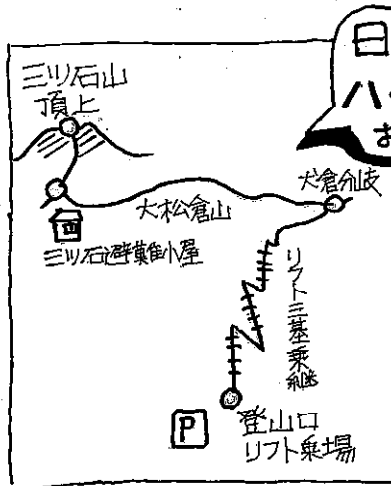 日
八
お
三ツ石山
頂上
犬倉分岐
大松倉山
三ツ石避難小屋
リフト三基乗継
P
登山口
リフト乗場